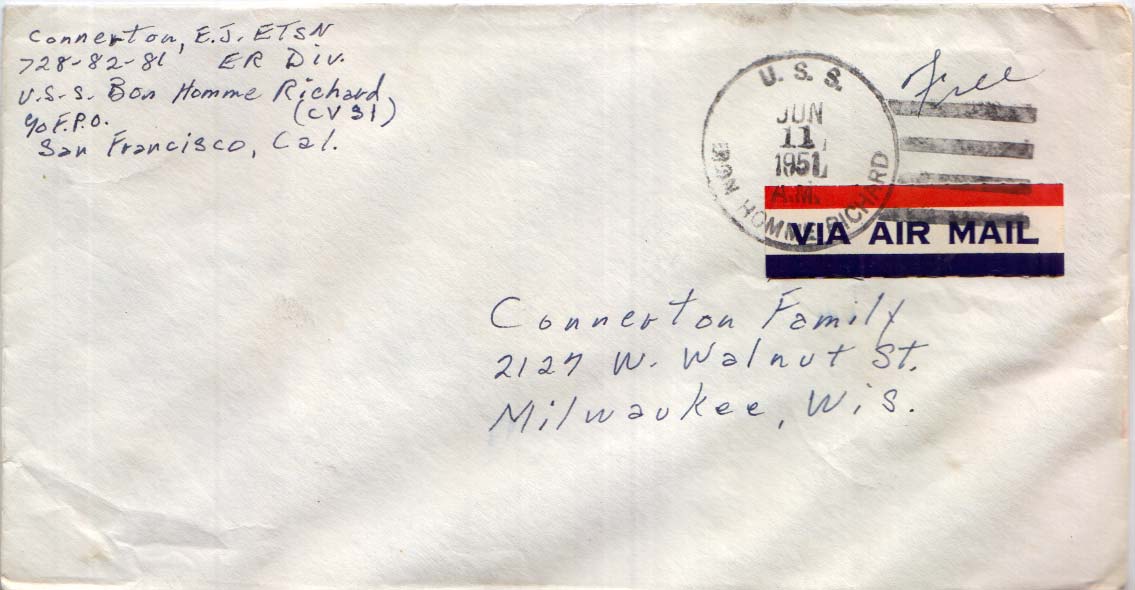 Connerton, E.J. ETSN
728-82-81 ER Div.
U.S.S. Bon Homme Richard
(CV 31)
c/o F.P.O.
San Francisco, Cal.
Free
U. S. S.
JUN
11
1951
A.M.
BON HOMME RICHARD
VIA AIR MAIL
Connerton Family
2127 W. Walnut St.
Milwaukee, Wis.